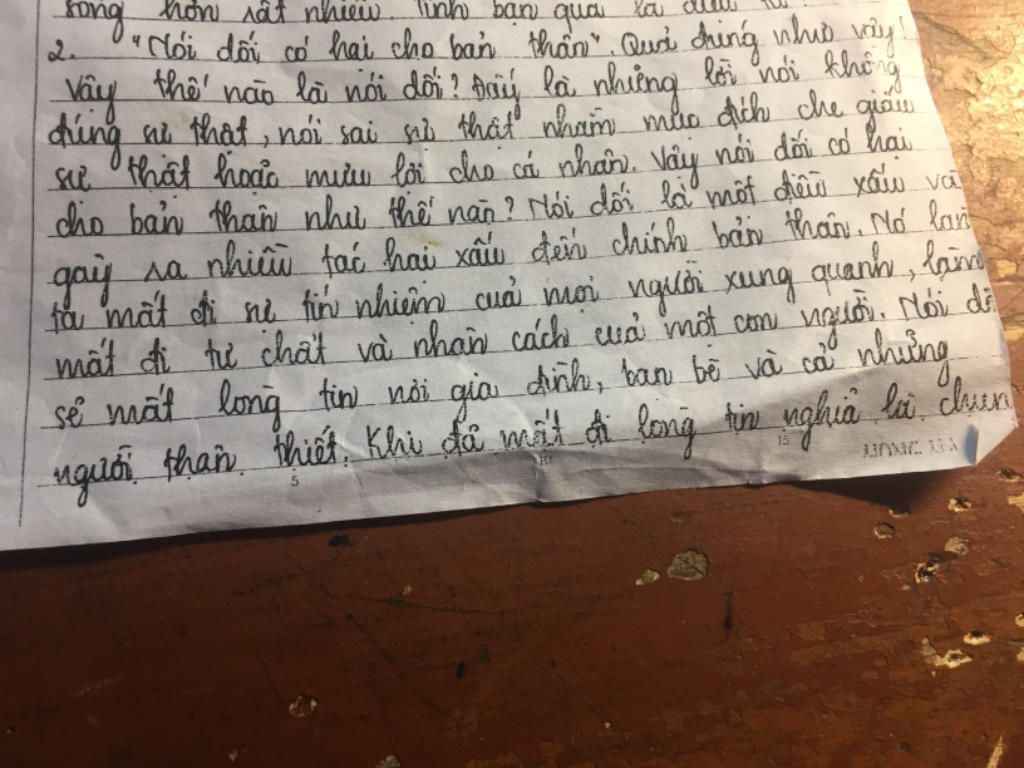 hơn rất nhiều. Tình bạn quả là
2. "Nói dối có hại cho bản thân". Quả đúng như vậy!
Vậy thế nào là nói dối? Đấy là những lời nói không
đúng sự thật, nói sai sự thật nhằm mục đích che giấu
sự thật hoặc mưu lợi cho cá nhân. Vậy nói dối có hại
cho bản thân như thế nào? Nói dối là một điều xấu và
gây ra nhiều tác hại xấu đến chính bản thân. Nó làm
ta mất đi sự tín nhiệm của mọi người xung quanh, làm
mất đi tư chất và nhân cách của một con người. Nói dối
sẽ mất lòng tin nơi gia đình, bạn bè và cả những
người thân thiết. Khi đã mất đi lòng tin nghĩa là
5 10 15